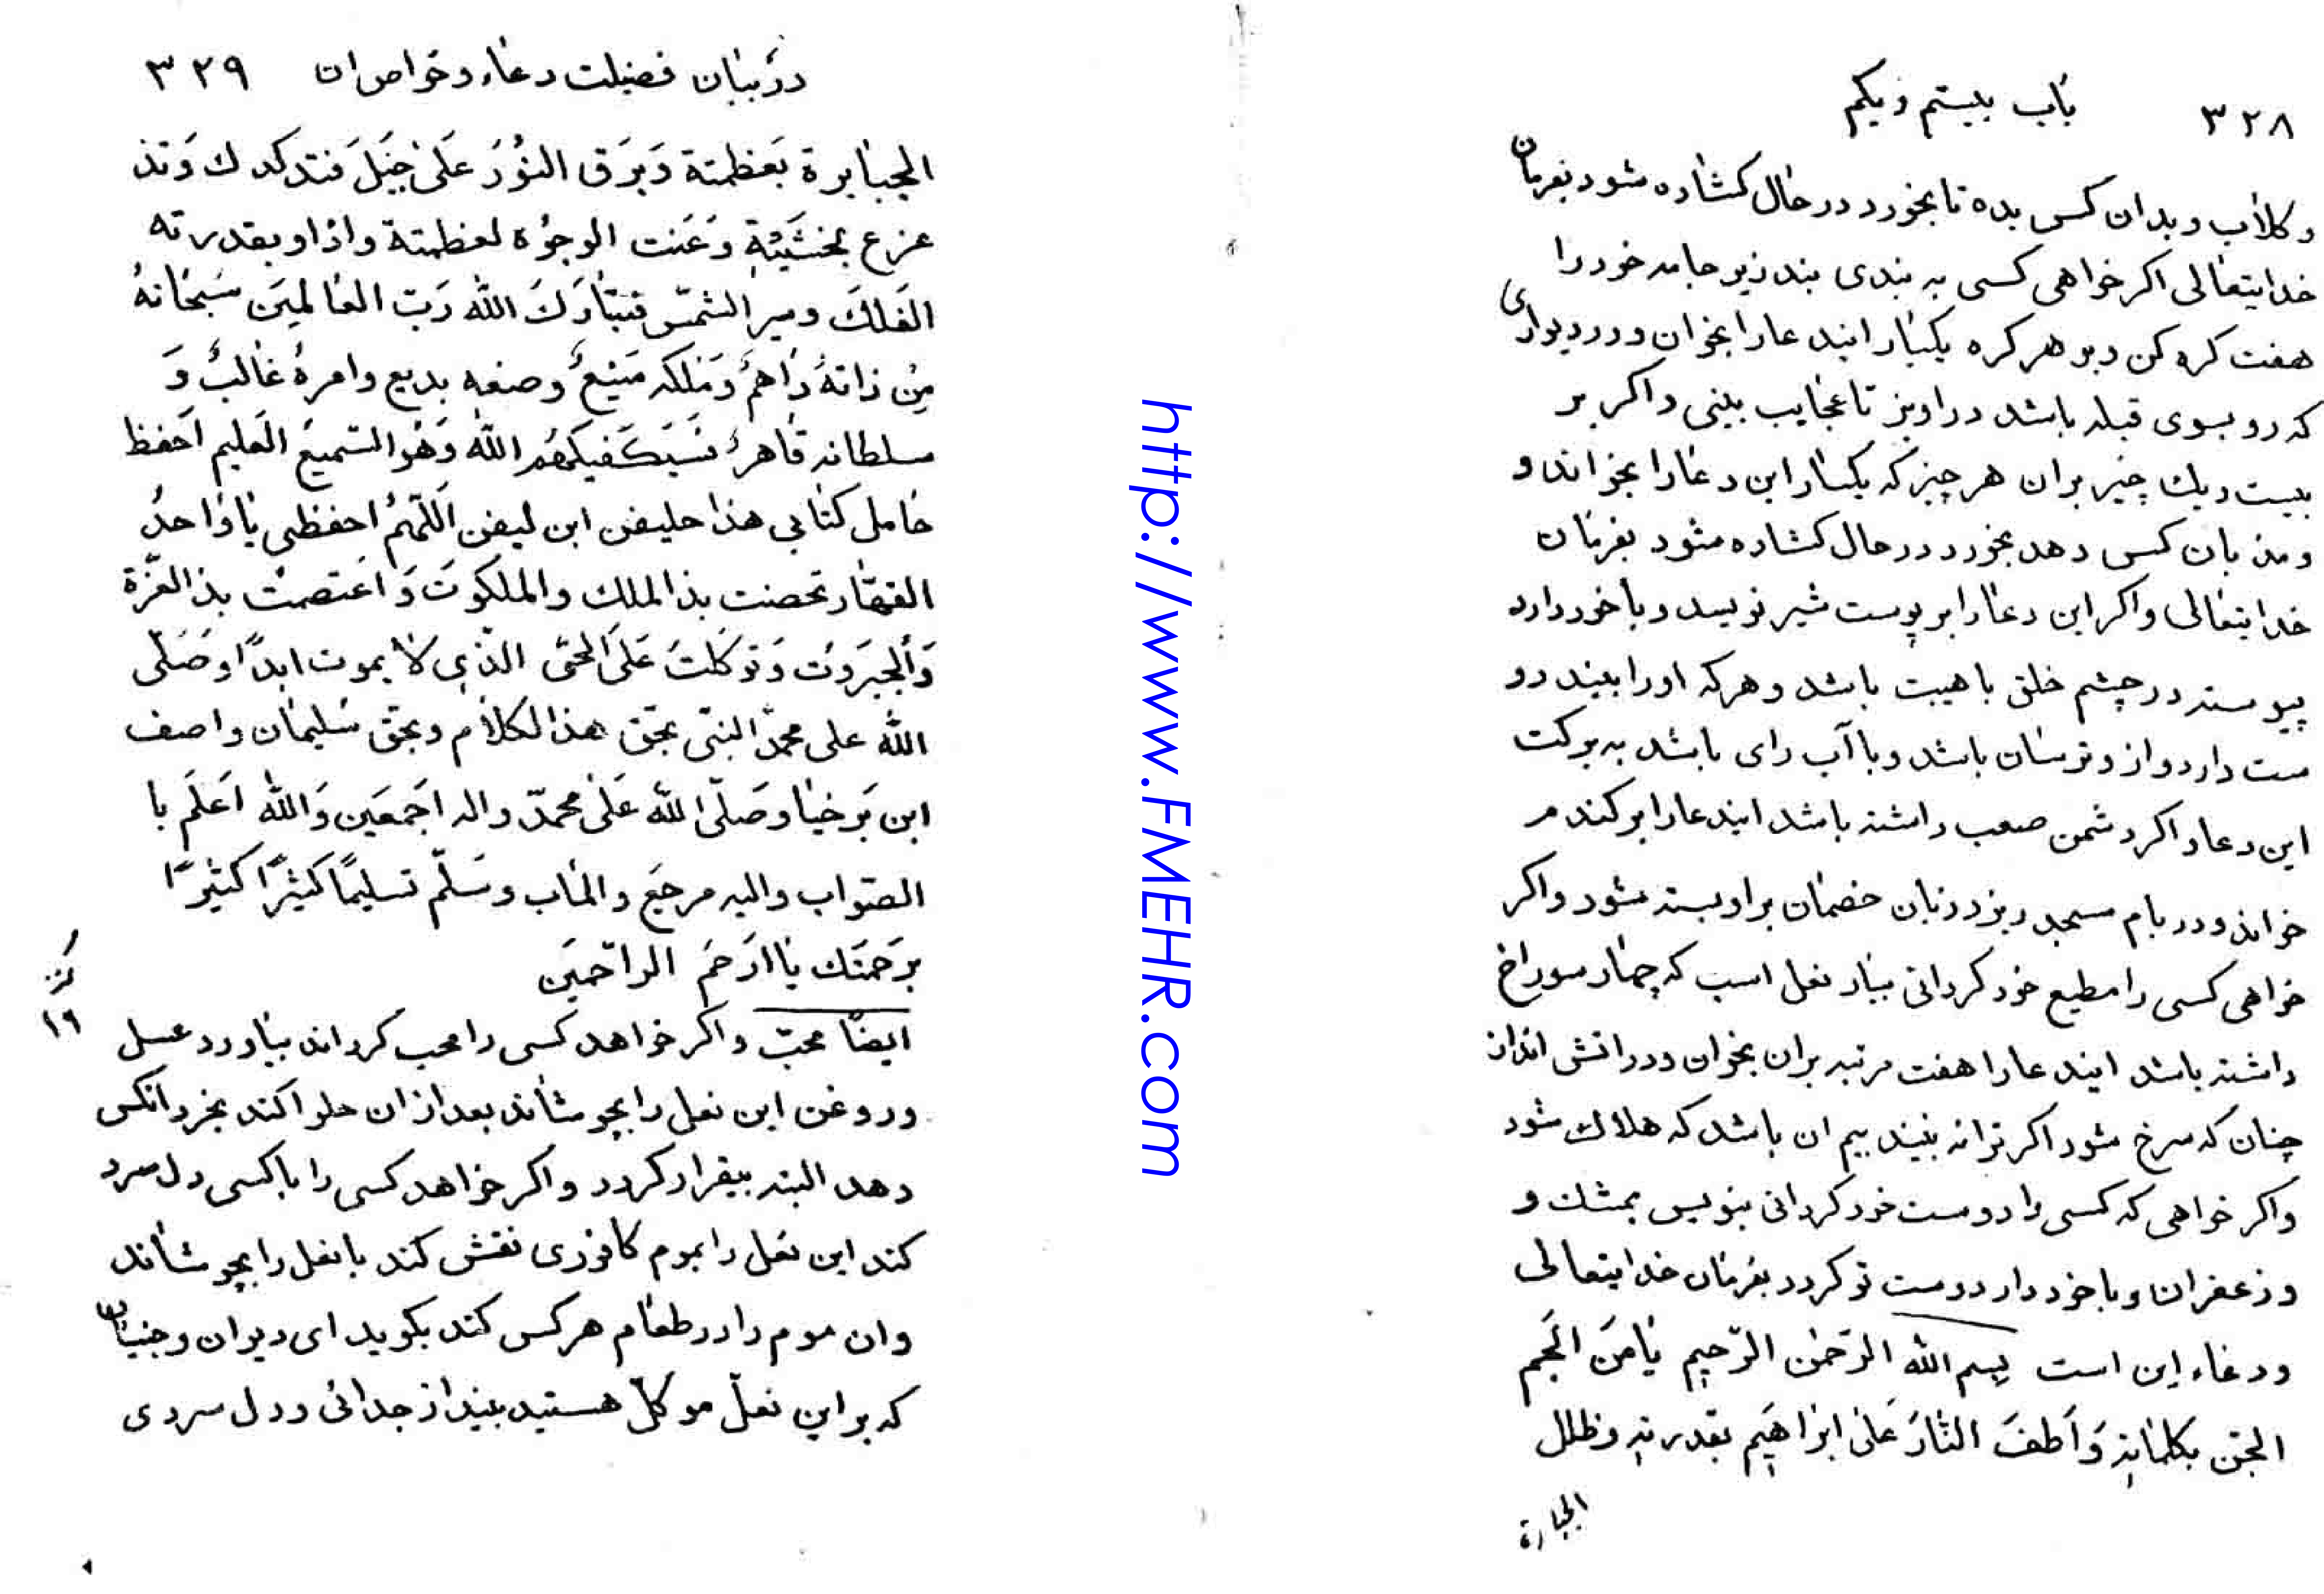 باب بیستم و یکم ۳۲۸
و کلاب و بدان کس بده تا بخورد در حال کشاده شود بفرمان
خدایتعالی اکر خواهی کسی به بندی بند زیر جامه خود را
هفت کره کن و بر هر کره یکبار ایندعا را بخوان و در دیواری
که رو بسوی قبله باشد در اویز تا عجایب بینی و اکر بر
بیست و یك چیز بران هر چیز که یکبار این دعا را بخواند و
و من بان کس دهد بخورد در حال کشاده شود بفرمان
خدایتعالی و اکر این دعا را بر پوست شیر نویسد و با خود دارد
پیوسته در چشم خلق با هیبت باشد و هر که او را بیند دو
ست دارد و از و ترسان باشد و با آب رای باشد به برکت
این دعا و اکر دشمن صعب داشته باشد ایندعا را بر کندم
خواند و در بام مسجد ریزد زبان خصمان بر او بسته شود و اکر
خواهی کسی را مطیع خود کردانی بیار نعل اسب که چهار سوراخ
داشته باشد ایندعا را هفت مرتبه بران بخوان و در اتش انداز
چنان که سرخ شود اکر ترا نه بیند بیم ان باشد که هلاك شود
و اکر خواهی که کسی را دوست خود کردانی بنویس بمشك و
و زعفران و با خود دار دوست تو کردد بفرمان خدایتعالی
و دعاء این است بسم الله الرّحمن الرّحیم یا من الجم
الجّن بکلماته وَ اَطفَ النّارَ عَلیٰ ابراهیَم بقدرته و ظلل
الجبارة
در بیان فضیلت دعاء و خواص ان ۳۲۹
الجبابرة بَعظمتة وَ بَرَق النوُرَ عَلیٰ جَبَلَ فتدکدك وَ تذ
عزع بخشَیَّةٍ وَ عَنت الوجوُه لعظمتة و اذاو بقدرته
الفَلكَ و میر الشمّس فتبٰارَكَ الله رَبّ العٰالمینَ سُبحٰانهُ
مِن ذاتهُ دٰاهمُ وَ مَلکه مَنیعُ و صنعه بدیع و امرهُ غالبُ وَ
سلطانه قٰاهرُ فسَیَکفیکهُم الله وَ هُو السّمیعُ العَلیم اَحفظ
حٰامل کتٰابی هذا حلیفن ابن لیفن اَللّهمُ احفظنی یٰا وٰاحدُ
القهّار تحصنت بذالملك والملکوتَ وَ اَعتصمت بذالعّزة
وَ الجَبَروتَ وَ توکلتَ عَلَی الحّی الذّی لاٰ یموت ابداً و صَلّی
الله علی محمّد النبّی بحّق هذالکلاٰم و بحّق سُلیمان و اصف
ابن بَرخیٰا و صَلّی الله عَلیٰ محمدّ و اله اجَمعَین وَ الله اَعلَم با
الصّواب و الیه مرجَع و المٰاب و سَلّم تسلیماً کثیرًا کثیرًا
برَحمتَك یٰا ارَحمَ الراّحمیَن
۱۹
ایضًا محبّ و اکر خواهد کسی را محب کرداند بیاورد عسل
و روغن این نعل را بجوشاند بعد ازان حلوا کند بخرد انکس
دهد البته بیقرار کردد و اکر خواهد کسی را با کسی دل سرد
کند این نعل را بموم کافوری نقش کند با نعل را بجوشاند
و ان موم را در طعام هر کس کند بکوید ای دیوان و جنیان
که بر این نعل موکلّ هستید بیندازجدائی و دل سردی
http://www.FMEHR.com